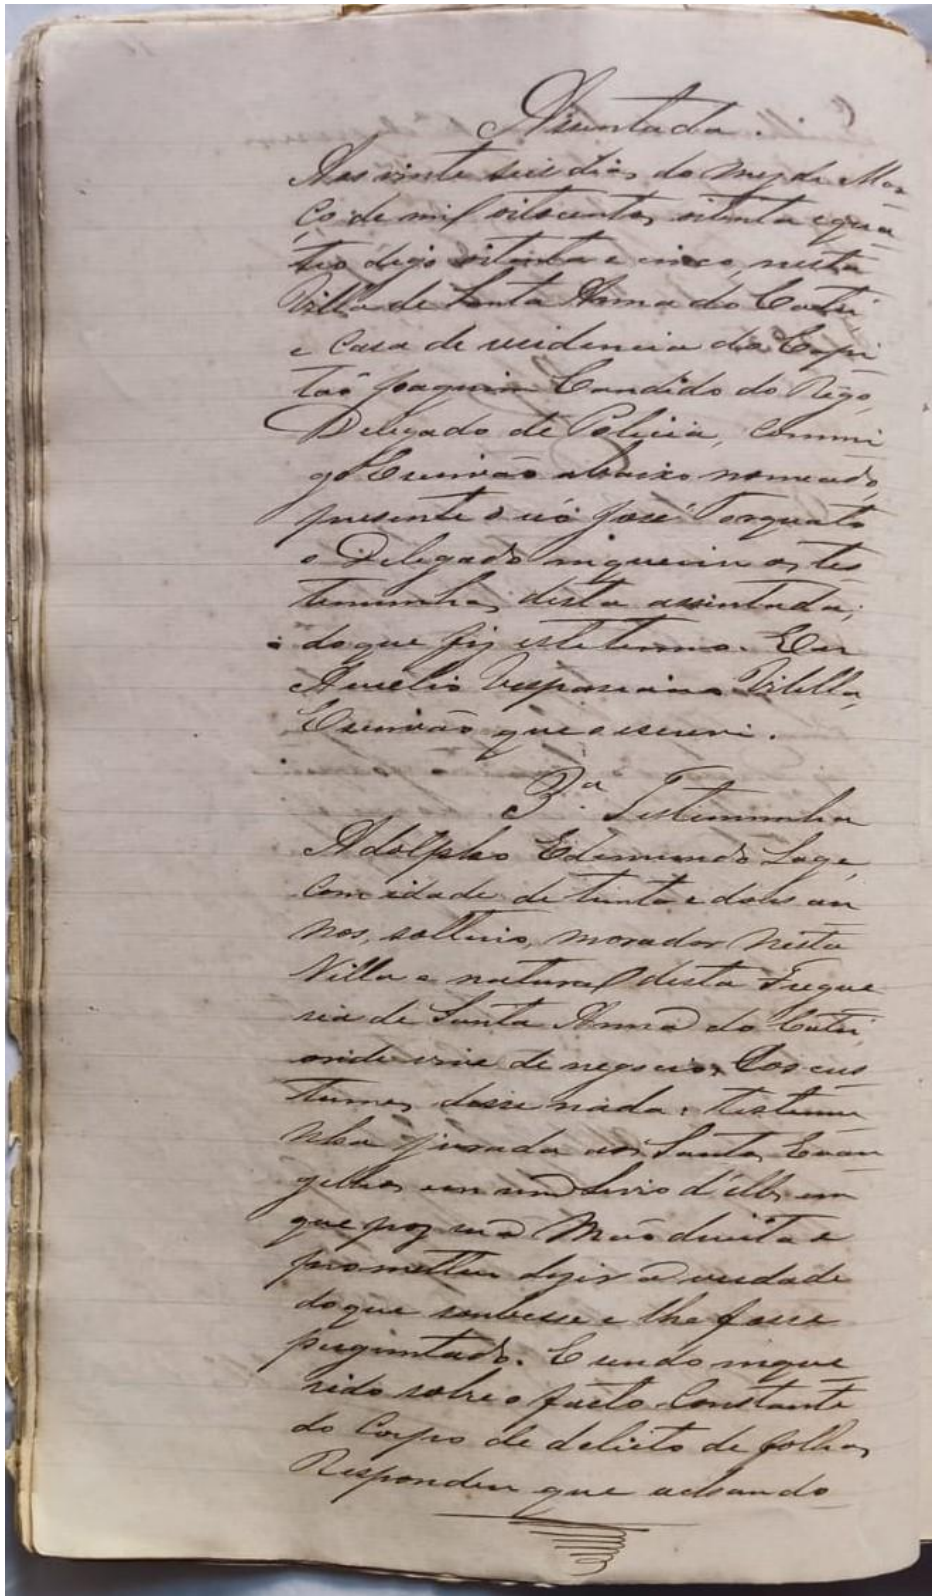 Assentada.
Aos vinte seis dias do mez de Mar
ço de mil oitocentos oitenta e qua
tro digo oitenta e cinco, nesta
Villa de Santa Anna do Catú
e Casa de residencia do Capi
tão Joaquim Candido do Rego,
Delegado de Policia, commi
go Escrivão abaixo nomeado,
presente o réo José Torquato
o Delegado inqueriu as tes
temunhas desta assentada;
do que fiz este termo. Eu
Aurelio Vespasiano Vilella,
Escrivão que o escrevi.
3.ª Testemunha
Adolpho Edemundo Lage,
com idade de trinta e dous an
nos, solteiro, morador nesta
Villa e natural desta Fregue
sia de Santa Anna do Catú
onde vive de negocio, Aos cus
tumes disse nada: testemu
nha jurada aos Santos Evan
gelhos em um Livro d'elles em
que poz sua Mão direita e
prometteu dizer a verdade
do que soubesse e lhe fosse
perguntado. E sendo inque
rido sobre o facto Constante
do Corpo de delicto de folhas
Respondeu que achando